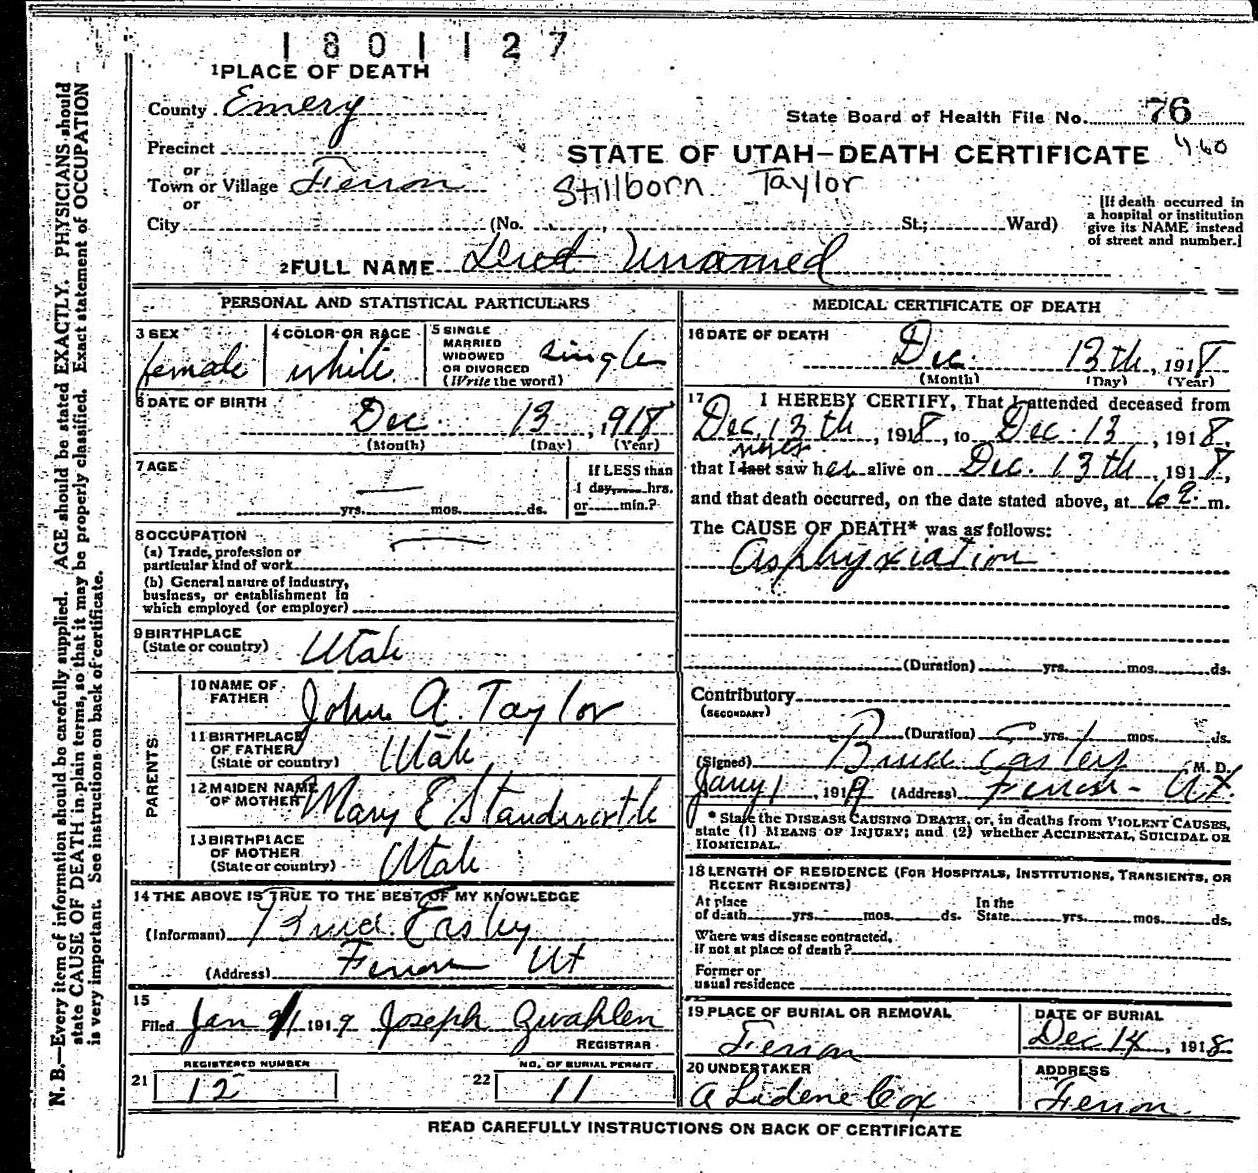 1801127
1 PLACE OF DEATH
County Emery
State Board of Health File No. 76
Precinct
460
STATE OF UTAH—DEATH CERTIFICATE
or
Town or Village Ferron
Stillborn Taylor
or
City (No. St.; Ward)
[If death occurred in a hospital or institution give its NAME instead of street and number.]
2 FULL NAME Unamed
PERSONAL AND STATISTICAL PARTICULARS
3 SEX female
4 COLOR OR RACE white
5 SINGLE MARRIED WIDOWED OR DIVORCED (Write the word) single
6 DATE OF BIRTH
Dec. 13, 918
(Month) (Day) (Year)
7 AGE
— yrs. mos. ds.
If LESS than 1 day, hrs. or min.?
8 OCCUPATION —
(a) Trade, profession or particular kind of work
(b) General nature of industry, business, or establishment in which employed (or employer)
9 BIRTHPLACE
(State or country) Utah
PARENTS
10 NAME OF FATHER John A. Taylor
11 BIRTHPLACE OF FATHER (State or country) Utah
12 MAIDEN NAME OF MOTHER Mary E
13 BIRTHPLACE OF MOTHER (State or country) Utah
14 THE ABOVE IS TRUE TO THE BEST OF MY KNOWLEDGE
(Informant) Easley
(Address) Ferron Ut
15
Filed Jan 1919 Joseph
REGISTRAR
REGISTERED NUMBER
21 12
NO. OF BURIAL PERMIT
22 11
MEDICAL CERTIFICATE OF DEATH
16 DATE OF DEATH
Dec. 13th, 1918
(Month) (Day) (Year)
17 I HEREBY CERTIFY, That I attended deceased from
Dec. 13th, 1918, to Dec. 13, 1918,
never
that I last saw her alive on Dec. 13th, 1918,
and that death occurred, on the date stated above, at m.
The CAUSE OF DEATH* was as follows:
asphyxiation
(Duration) yrs. mos. ds.
Contributory
(SECONDARY)
(Duration) yrs. mos. ds.
(Signed) Easley M. D.
1919 (Address) Ferron - Ut.
* State the DISEASE CAUSING DEATH, or, in deaths from VIOLENT CAUSES,
state (1) MEANS OF INJURY; and (2) whether ACCIDENTAL, SUICIDAL OR
HOMICIDAL.
18 LENGTH OF RESIDENCE (FOR HOSPITALS, INSTITUTIONS, TRANSIENTS, OR
RECENT RESIDENTS)
At place of death yrs. mos. ds. In the State yrs. mos. ds.
Where was disease contracted,
if not at place of death?
Former or
usual residence
19 PLACE OF BURIAL OR REMOVAL
Ferron
DATE OF BURIAL
Dec 14, 1918
20 UNDERTAKER
A Cox
ADDRESS
Ferron
READ CAREFULLY INSTRUCTIONS ON BACK OF CERTIFICATE
N. B.—Every item of information should be carefully supplied. AGE should be stated EXACTLY. PHYSICIANS should
state CAUSE OF DEATH in plain terms, so that it may be properly classified. Exact statement of OCCUPATION
is very important. See instructions on back of certificate.